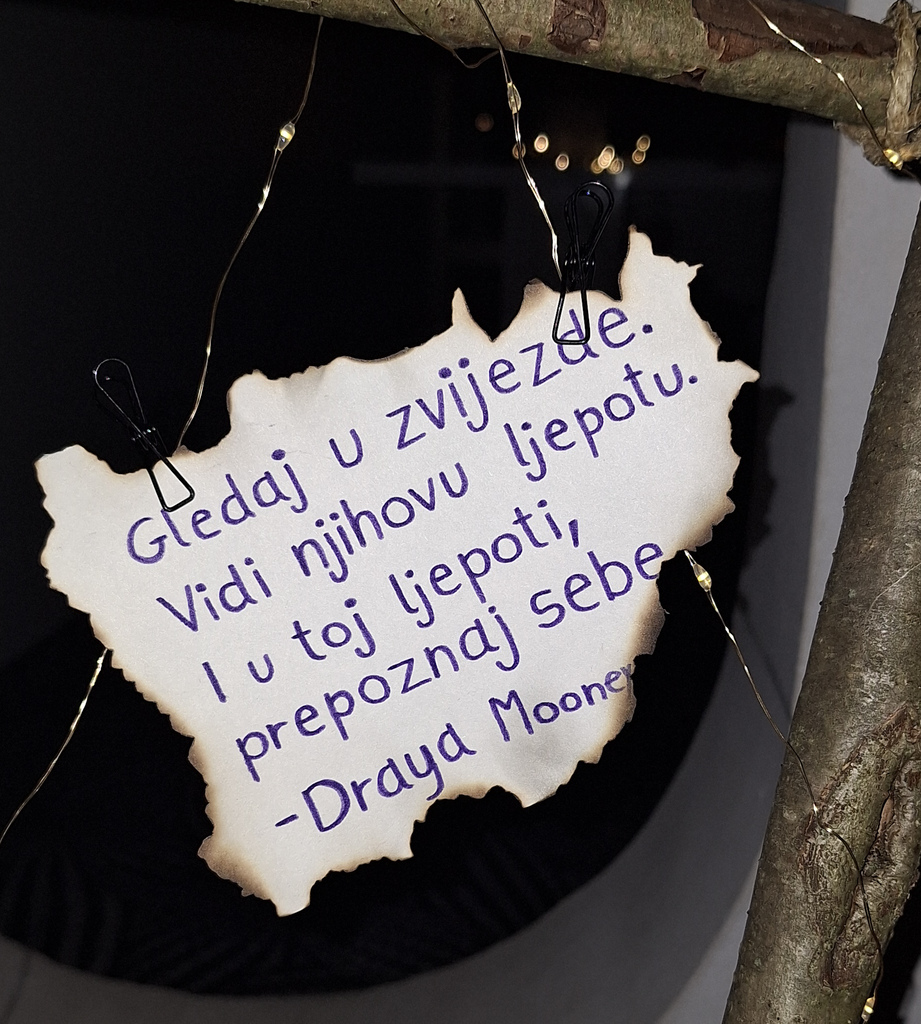 Gledaj u zvijezde.
Vidi njihovu ljepotu.
I u toj ljepoti,
prepoznaj sebe
-Draya Mooney